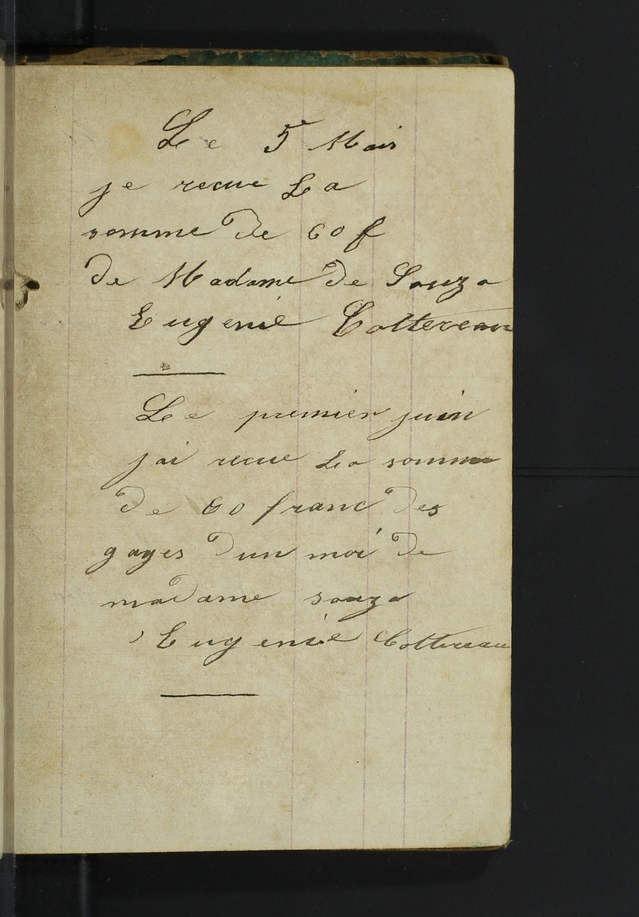 Le 5 Mais
je recue La
somme de 60 f
de Madame de Souza
Eugenie Cottereau
Le premier juin
jai recue La somme
de 60 franc des
gages dun moi de
madame souza
Eugenie Cottereau